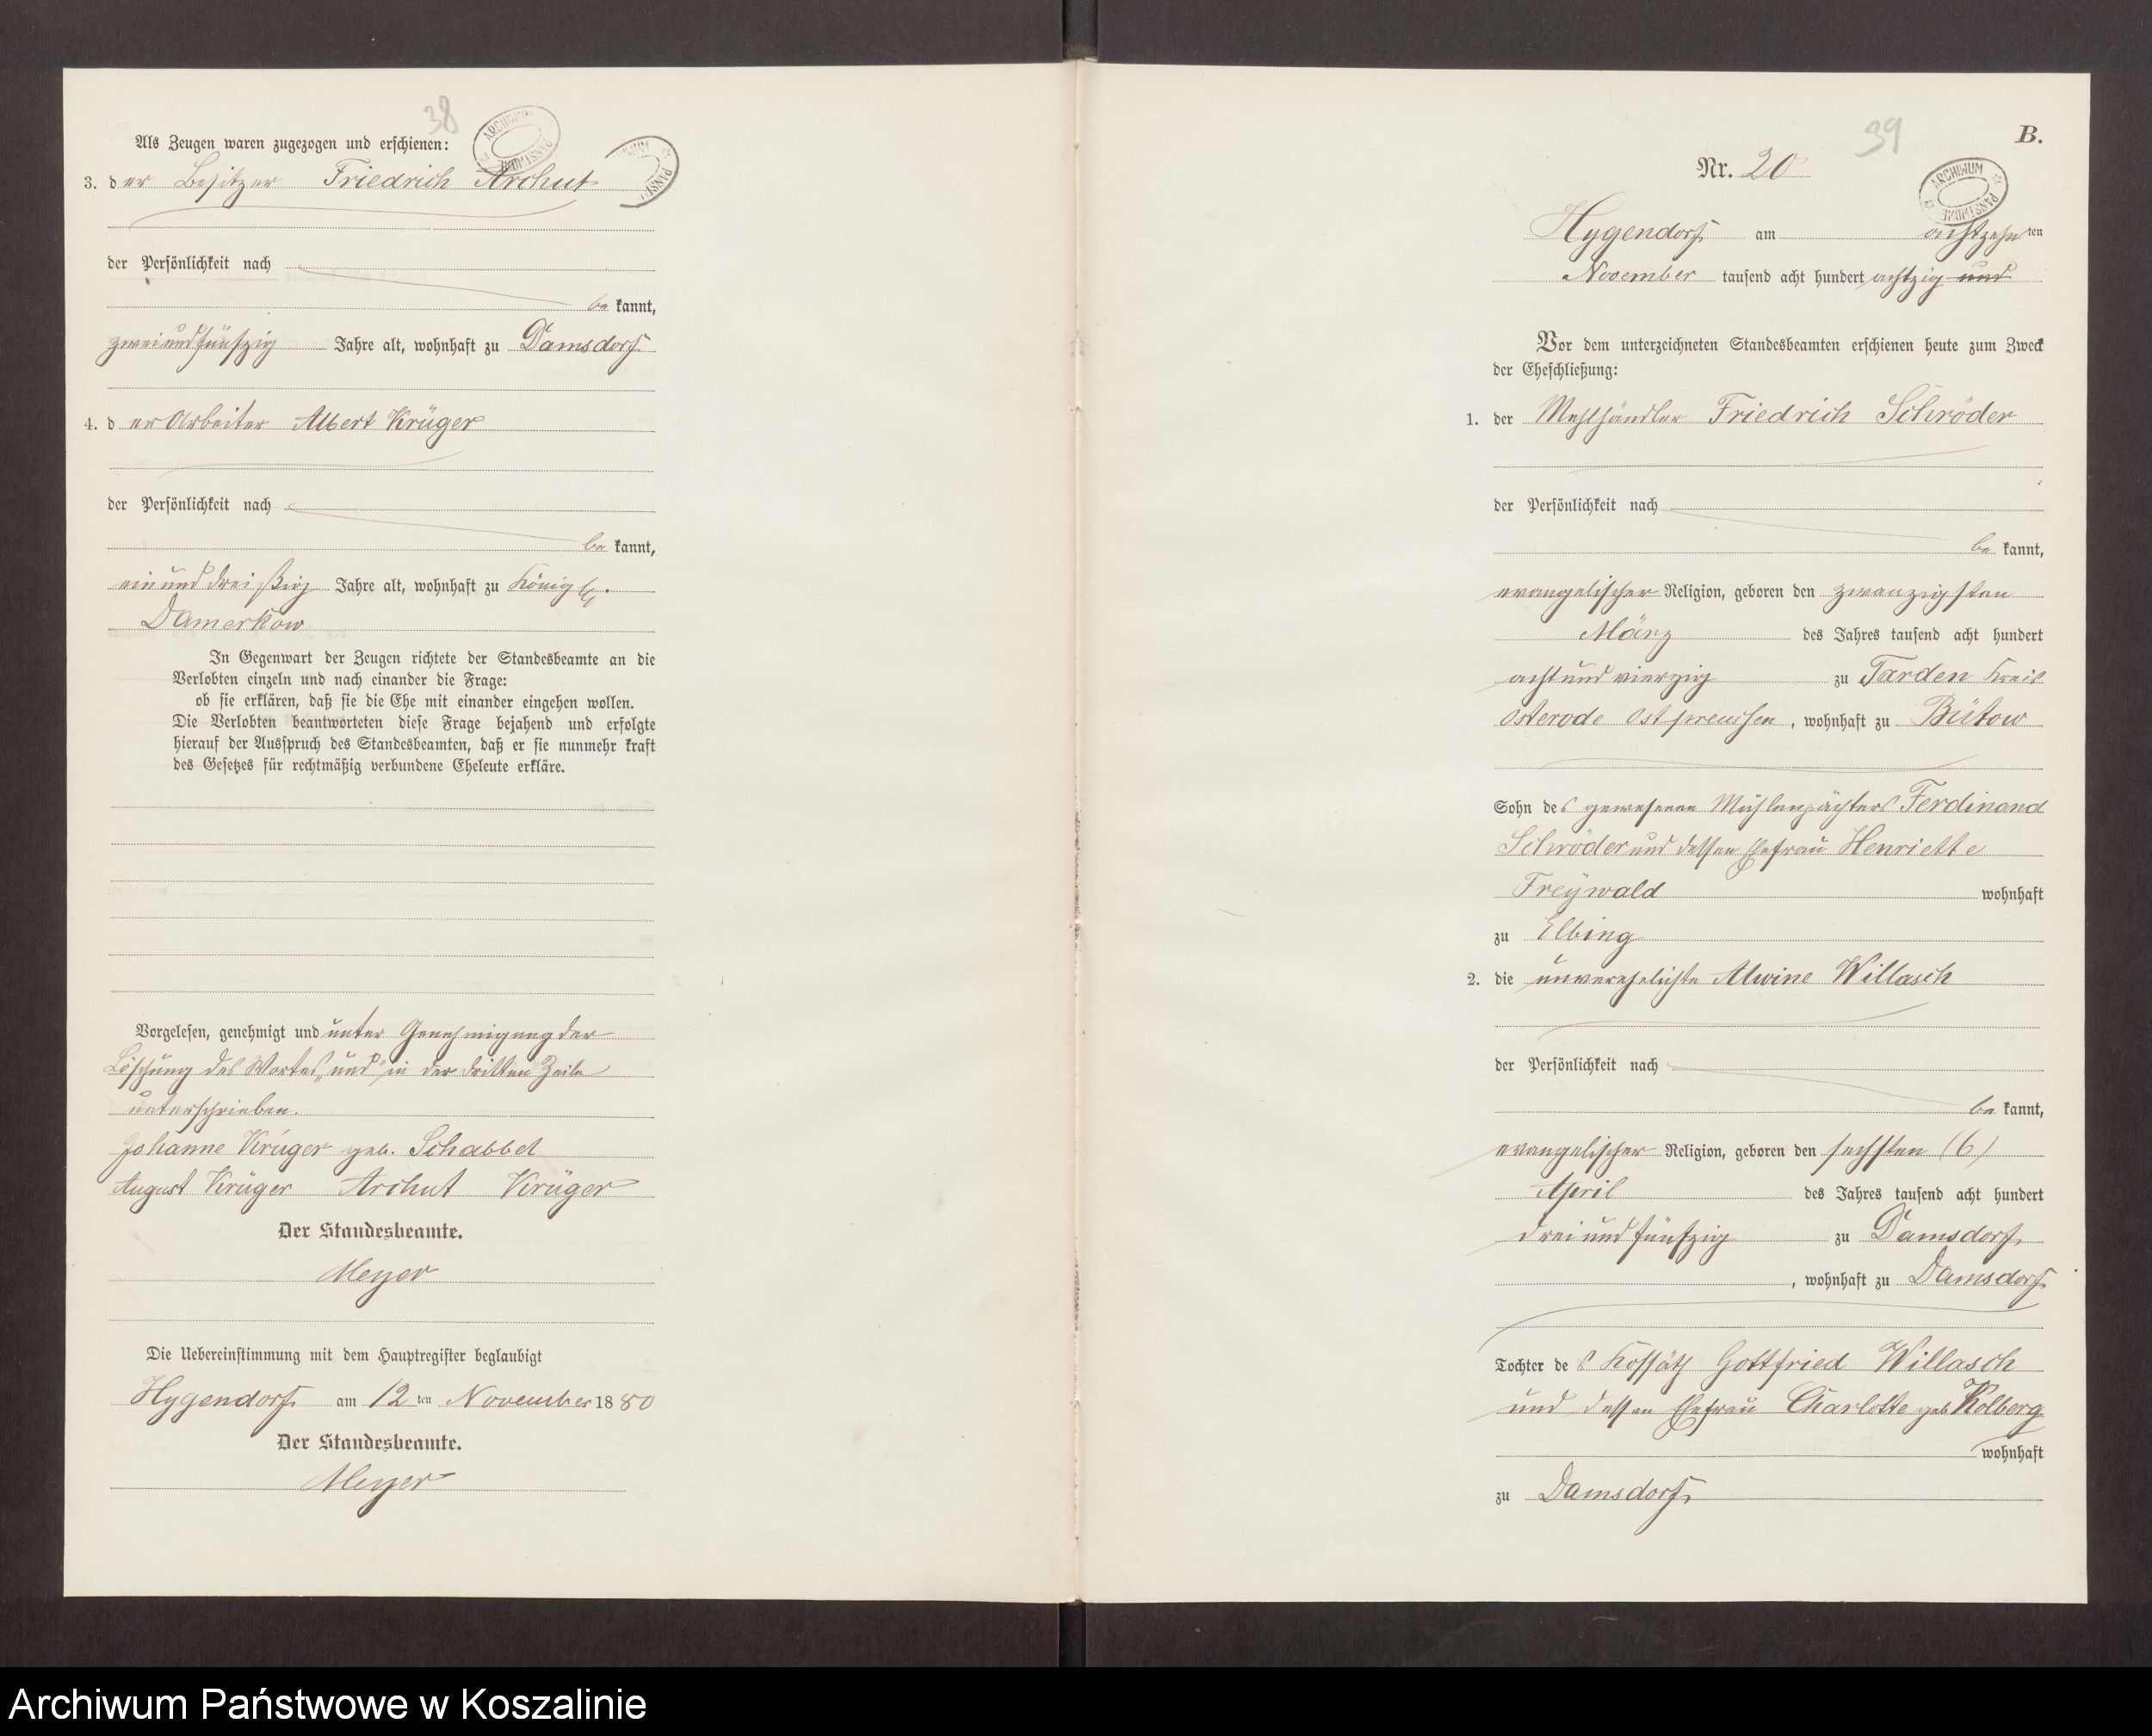 38
ARCHIWUM PAŃSTWOWE
Als Zeugen waren zugezogen und erschienen:
3. der Besitzer Friedrich Archut
der Persönlichkeit nach
be kannt,
zweiundfünfzig Jahre alt, wohnhaft zu Damsdorf
4. der Arbeiter Albert Krüger
der Persönlichkeit nach
be kannt,
einunddreißig Jahre alt, wohnhaft zu Königl.
Damerkow
In Gegenwart der Zeugen richtete der Standesbeamte an die
Verlobten einzeln und nach einander die Frage:
ob sie erklären, daß sie die Ehe mit einander eingehen wollen.
Die Verlobten beantworteten diese Frage bejahend und erfolgte
hierauf der Ausspruch des Standesbeamten, daß er sie nunmehr kraft
des Gesetzes für rechtmäßig verbundene Eheleute erkläre.
Vorgelesen, genehmigt und unter Genehmigung der
Löschung des Wortes „und" in der dritten Zeile
unterschrieben.
Johanne Krüger geb. Schabbel
August Krüger Archut Krüger
Der Standesbeamte.
Meyer
Die Uebereinstimmung mit dem Hauptregister beglaubigt
Hygendorf am 12 ten November 1880
Der Standesbeamte.
Meyer
39
B.
Nr. 20
ARCHIWUM PAŃSTWOWE
Hygendorf am achtzehn ten
November tausend acht hundert achtzig und
Vor dem unterzeichneten Standesbeamten erschienen heute zum Zweck
der Eheschließung:
1. der Mehlhändler Friedrich Schröder
der Persönlichkeit nach
be kannt,
evangelischer Religion, geboren den zwanzigsten
März des Jahres tausend acht hundert
achtundvierzig zu Tarden Kreis
Osterode Ostpreussen, wohnhaft zu Bütow
Sohn des gewesenen Mühlenpächters Ferdinand
Schröder und dessen Ehefrau Henriette
Freywald wohnhaft
zu Elbing
2. die unverehelichte Alwine Willasch
der Persönlichkeit nach
be kannt,
evangelischer Religion, geboren den sechsten (6)
April des Jahres tausend acht hundert
dreiundfünfzig zu Damsdorf
, wohnhaft zu Damsdorf
Tochter des Kossäth Gottfried Willasch
und dessen Ehefrau Charlotte geb. Kolberg
wohnhaft
zu Damsdorf
Archiwum Państwowe w Koszalinie